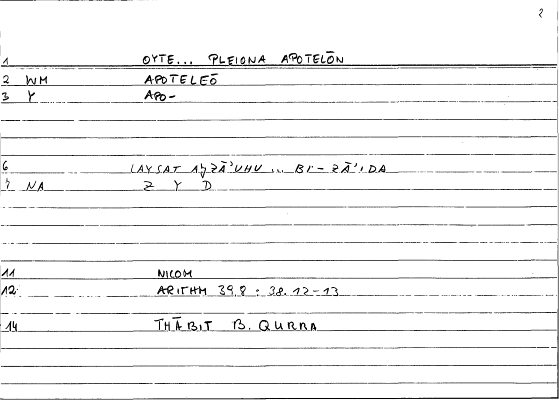 2
1 OYTE... PLEIONA APOTELŌN
2 WM APOTELEŌ
3 Y APO-
6 LAYSAT AǦZĀ'UHU ... BI-ZĀ'IDA
7 NA Z Y D
11 NICOM
12 ARITHM 39.8 : 38.12-13
14 THĀBIT B. QURRA